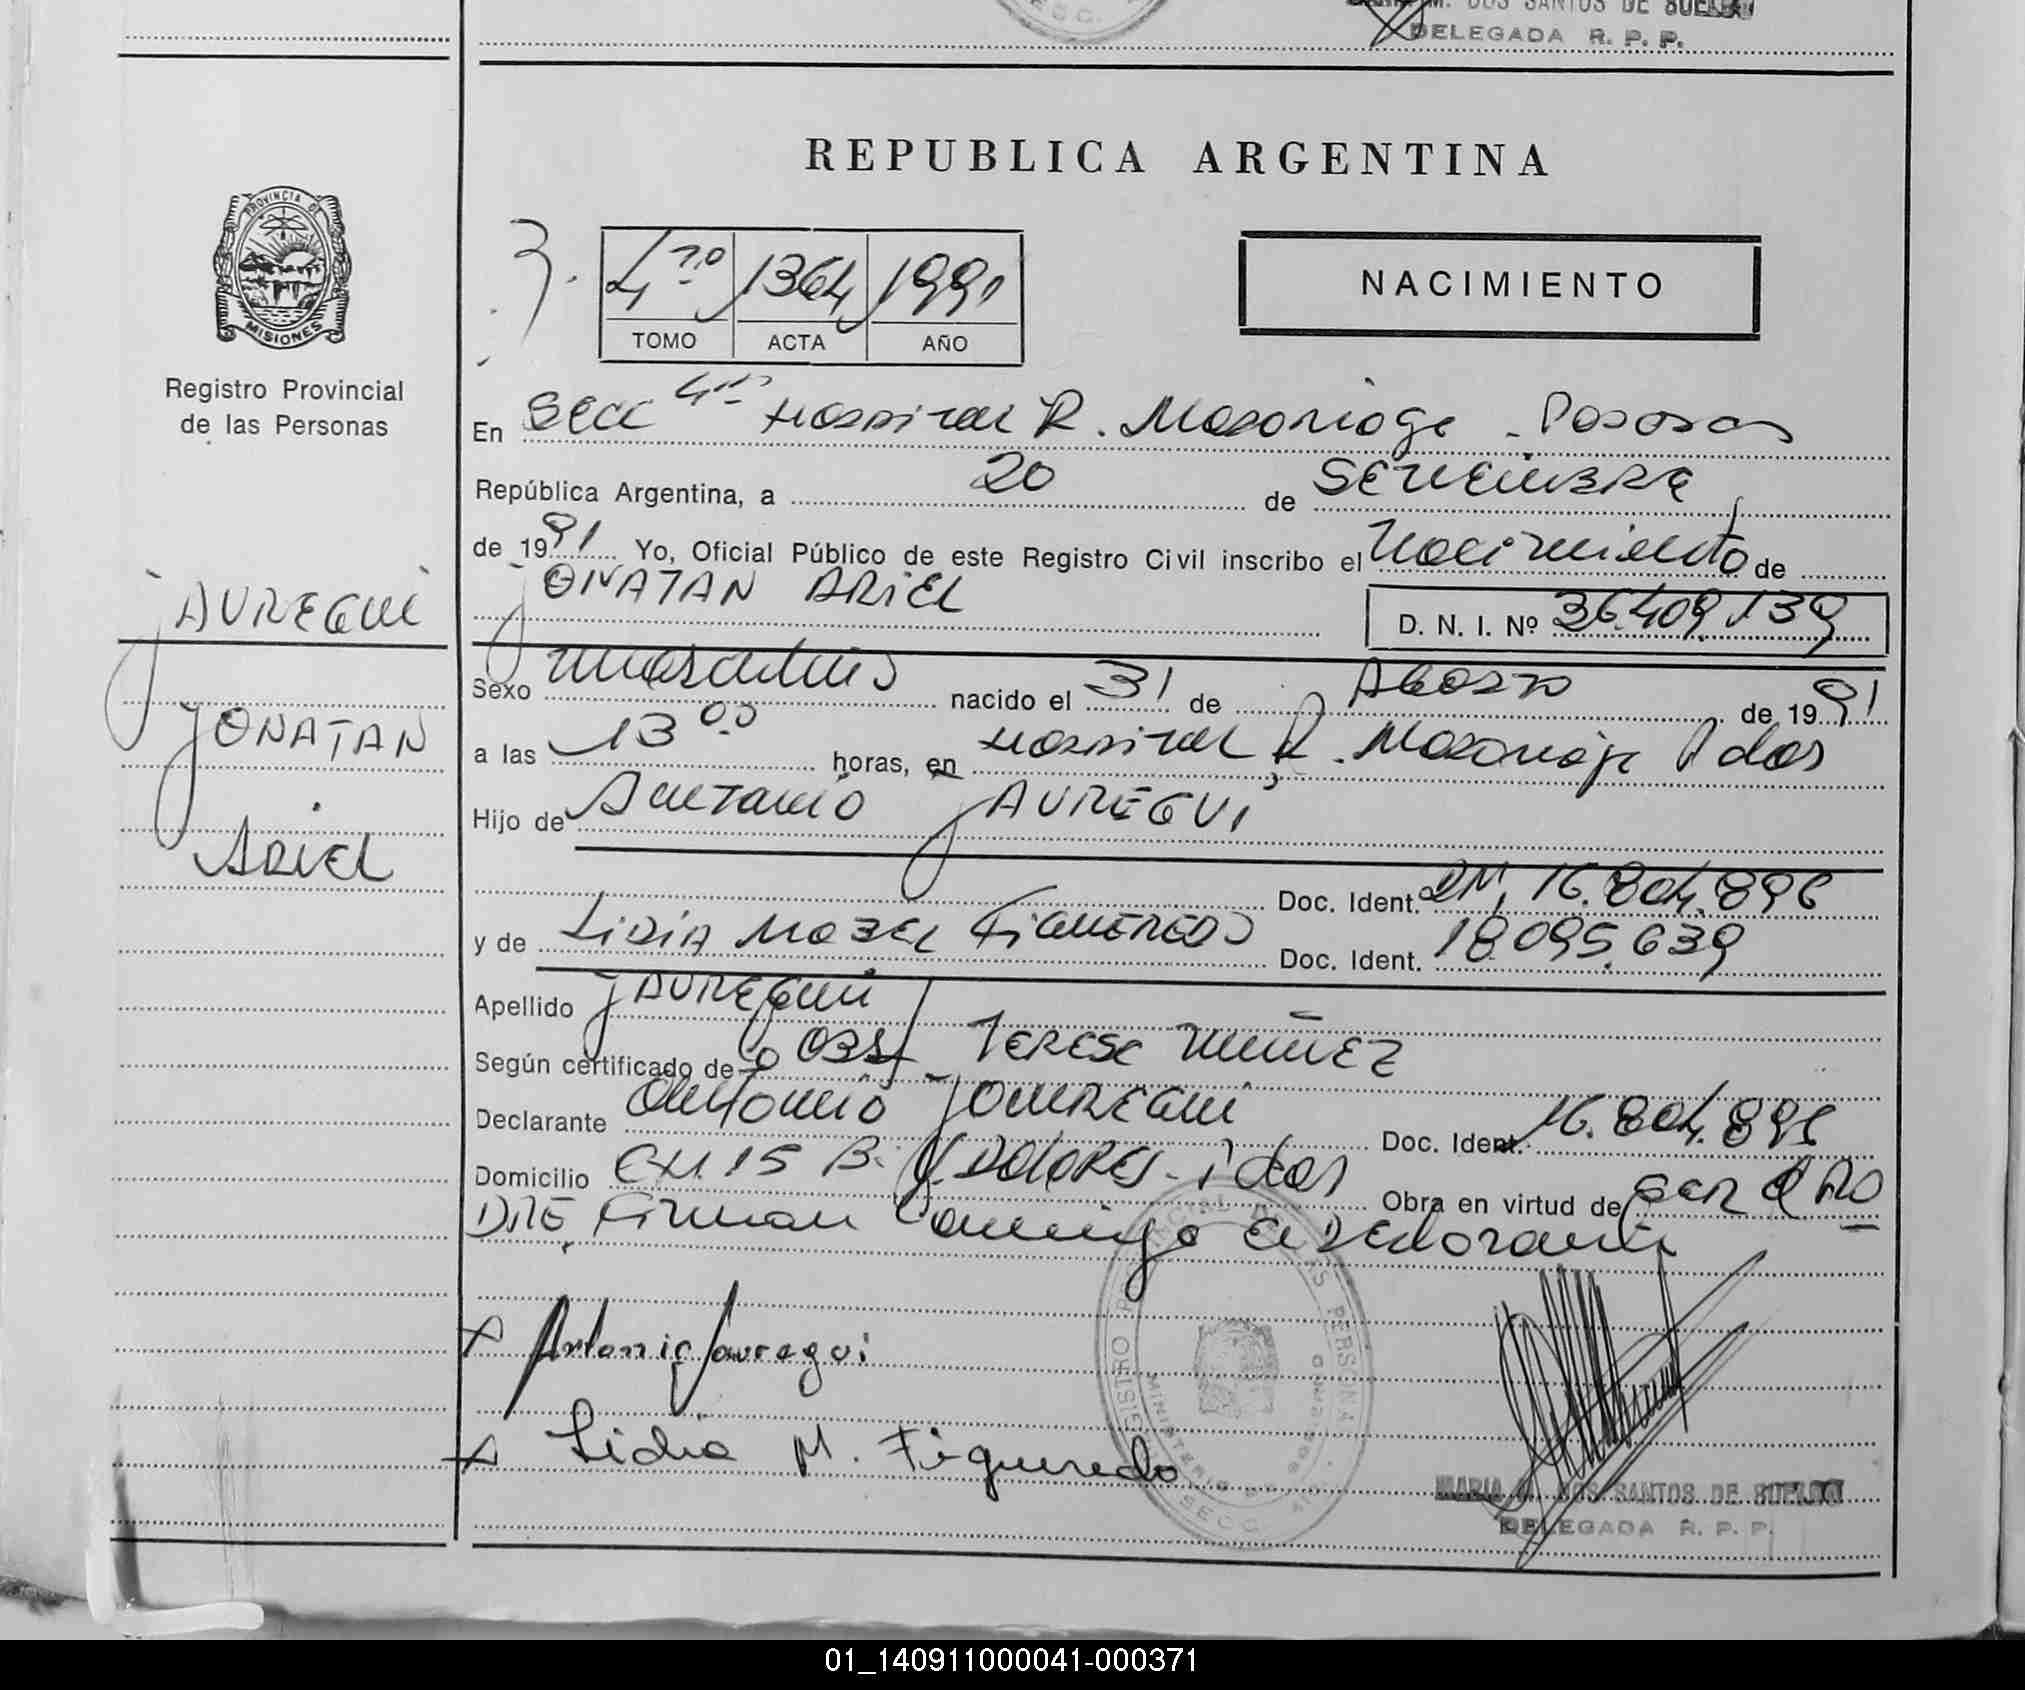 M. DOS SANTOS DE
DELEGADA R. P. P.
REPUBLICA ARGENTINA
PROVINCIA DE
MISIONES
Registro Provincial
de las Personas
3.
4º 1364 1991
TOMO ACTA AÑO
NACIMIENTO
En Secc 4ta Hospital R. Madariaga - Posadas
República Argentina, a 20 de SETIEMBRE
de 1991 Yo, Oficial Público de este Registro Civil inscribo el Nacimiento de
JONATAN ARIEL
D. N. I. Nº 36.409.139
JAUREGUI
JONATAN
ARIEL
Sexo masculino nacido el 31 de AGOSTO de 1991
a las 13 00 horas, en Hospital R. Madariaga Pdas
Hijo de Antonio JAUREGUI
Doc. Ident. DNI 16.804.896
y de LIDIA MABEL FIGUEREDO Doc. Ident. 18.095.639
Apellido JAUREGUI
Según certificado de Obst. TERESA NUÑEZ
Declarante Antonio JAUREGUI Doc. Ident. 16.804.896
Domicilio CH. 15 B. V. DOLORES - Pdas Obra en virtud de
Firman Conmigo El Declarante
x Antonio Jauregui
x Lidia M. Figueredo
REGISTRO PROVINCIAL DE LAS PERSONAS
MINISTERIO DE GOBIERNO
SECC.
MARIA M. DOS SANTOS DE
DELEGADA R. P. P.
01_140911000041-000371